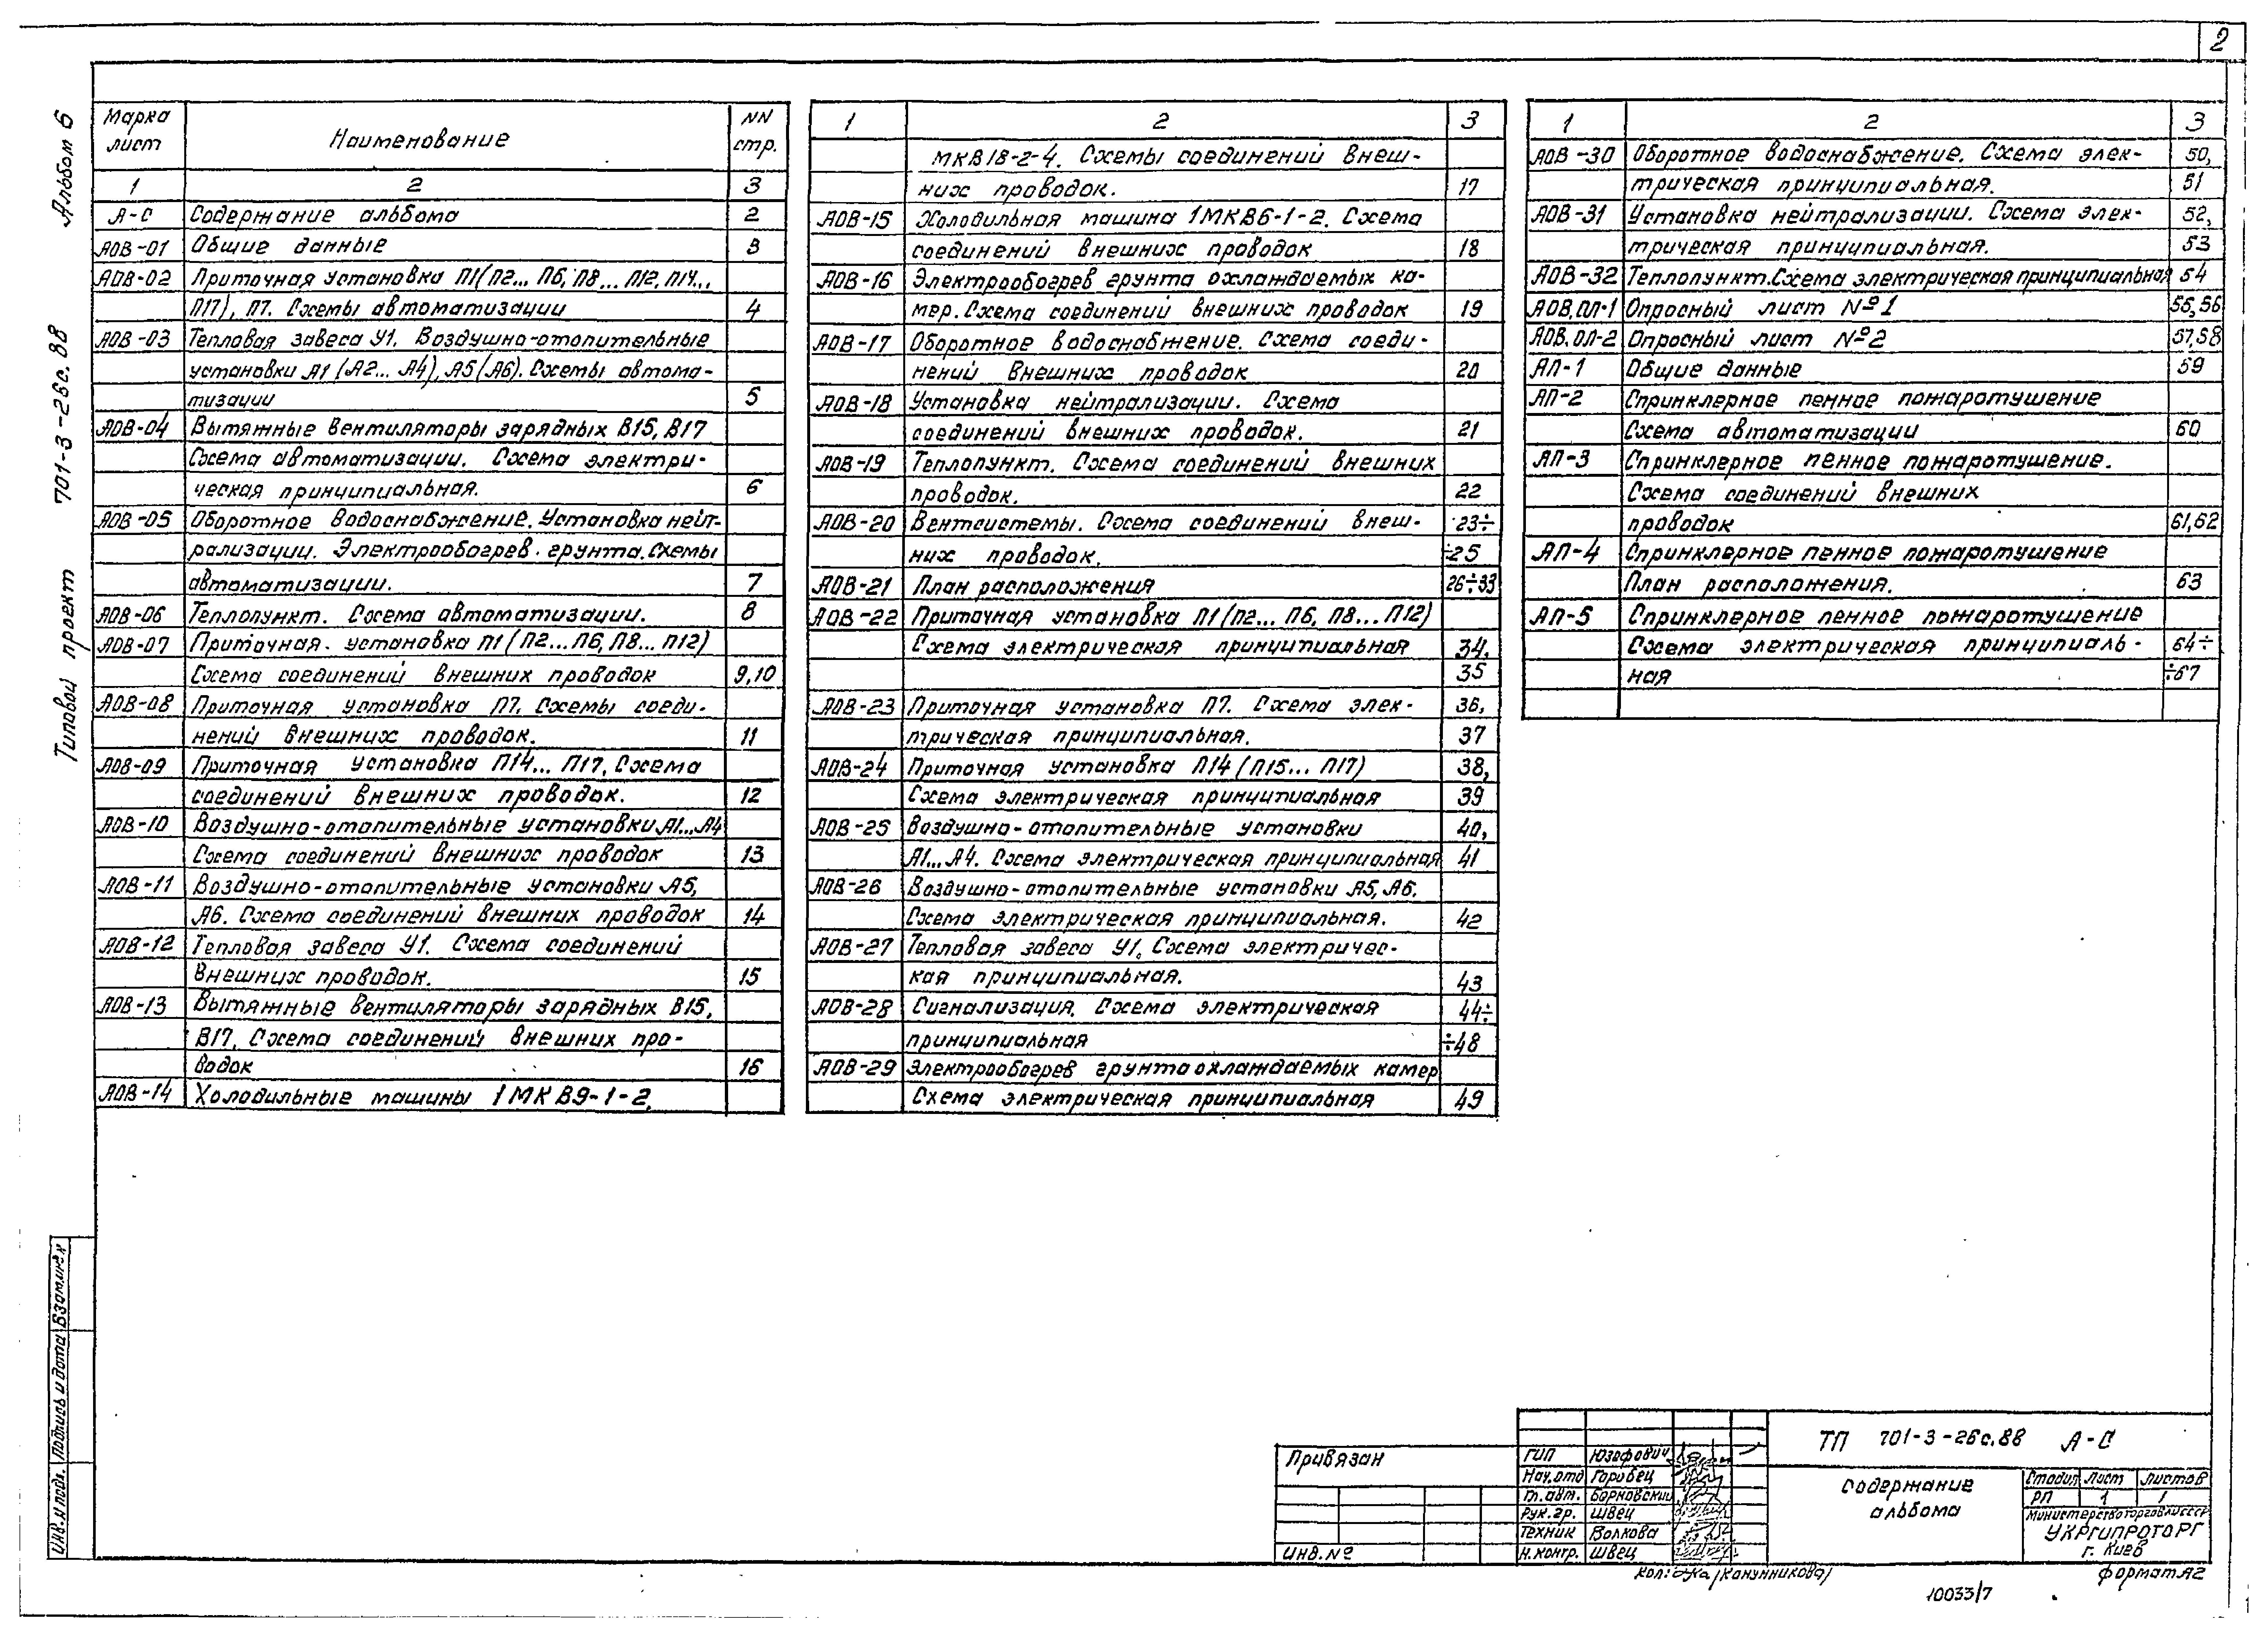 2
Альбом 6
Типовой проект 701-3-26с.88
Марка лист Наименование NN стр.
1 2 3
А-С Содержание альбома 2
АОВ-01 Общие данные 3
АОВ-02 Приточная установка П1(П2... П6, П8... П12, П14...
П17), П7. Схемы автоматизации 4
АОВ-03 Тепловая завеса У1. Воздушно-отопительные
установки А1 (А2... А4), А5(А6). Схемы автома-
тизации 5
АОВ-04 Вытяжные вентиляторы зарядных В15, В17
Схема автоматизации. Схема электри-
ческая принципиальная. 6
АОВ-05 Оборотное водоснабжение. Установка нейт-
рализации. Электрообогрев грунта. Схемы
автоматизации. 7
АОВ-06 Теплопункт. Схема автоматизации. 8
АОВ-07 Приточная установка П1 (П2... П6, П8... П12)
Схема соединений внешних проводок 9,10
АОВ-08 Приточная установка П7. Схемы соеди-
нений внешних проводок. 11
АОВ-09 Приточная установка П14... П17. Схема
соединений внешних проводок. 12
АОВ-10 Воздушно-отопительные установки А1... А4
Схема соединений внешних проводок 13
АОВ-11 Воздушно-отопительные установки А5,
А6. Схема соединений внешних проводок 14
АОВ-12 Тепловая завеса У1. Схема соединений
внешних проводок. 15
АОВ-13 Вытяжные вентиляторы зарядных В15,
В17. Схема соединений внешних про-
водок 16
АОВ-14 Холодильные машины 1МКВ9-1-2,
1 2 3
МКВ18-2-4. Схемы соединений внеш-
них проводок. 17
АОВ-15 Холодильная машина 1МКВ6-1-2. Схема
соединений внешних проводок 18
АОВ-16 Электрообогрев грунта охлаждаемых ка-
мер. Схема соединений внешних проводок 19
АОВ-17 Оборотное водоснабжение. Схема соеди-
нений внешних проводок 20
АОВ-18 Установка нейтрализации. Схема
соединений внешних проводок. 21
АОВ-19 Теплопункт. Схема соединений внешних
проводок. 22
АОВ-20 Вентсистемы. Схема соединений внеш- 23÷
них проводок. ÷25
АОВ-21 План расположения 26÷33
АОВ-22 Приточная установка П1 (П2... П6, П8... П12)
Схема электрическая принципиальная 34,
35
АОВ-23 Приточная установка П7. Схема элек- 36,
трическая принципиальная. 37
АОВ-24 Приточная установка П14 (П15... П17) 38,
Схема электрическая принципиальная 39
АОВ-25 Воздушно-отопительные установки 40,
А1... А4. Схема электрическая принципиальная 41
АОВ-26 Воздушно-отопительные установки А5, А6.
Схема электрическая принципиальная. 42
АОВ-27 Тепловая завеса У1. Схема электричес-
кая принципиальная. 43
АОВ-28 Сигнализация. Схема электрическая 44÷
принципиальная ÷48
АОВ-29 Электрообогрев грунта охлаждаемых камер
Схема электрическая принципиальная 49
1 2 3
АОВ-30 Оборотное водоснабжение. Схема элек- 50,
трическая принципиальная. 51
АОВ-31 Установка нейтрализации. Схема элек- 52,
трическая принципиальная. 53
АОВ-32 Теплопункт. Схема электрическая принципиальная 54
АОВ.ОЛ-1 Опросный лист №1 55,56
АОВ.ОЛ-2 Опросный лист №2 57,58
АП-1 Общие данные 59
АП-2 Спринклерное пенное пожаротушение
Схема автоматизации 60
АП-3 Спринклерное пенное пожаротушение.
Схема соединений внешних
проводок 61,62
АП-4 Спринклерное пенное пожаротушение
План расположения. 63
АП-5 Спринклерное пенное пожаротушение
Схема электрическая принципиаль- 64÷
ная ÷67
Инв.N подл. Подпись и дата Взам.инв.N
Привязан
Инв.№
ГИП Юзефович
Нач.отд Горовец
Гл.авт. Барновский
Рук.гр. Швец
Техник Волкова
Н.контр. Швец
ТП 701-3-26с.88 А-С
Содержание
альбома
Стадия Лист Листов
РП 1 1
Министерство торговли СССР
УКРГИПРОТОРГ
г. Киев
Кол: (Канунникова)
формат А2
10033/7